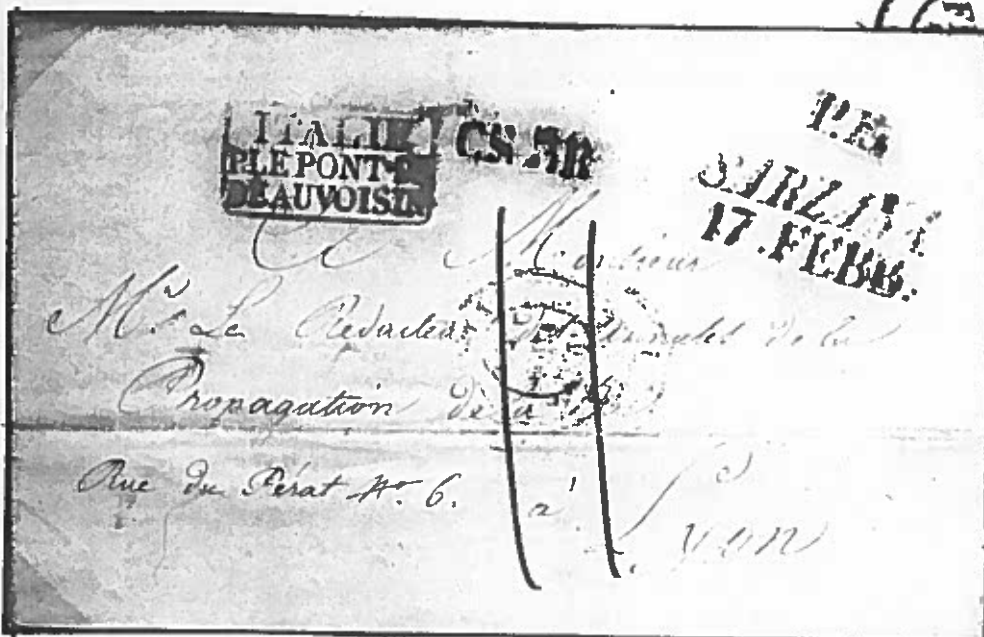 ITALIE
P.LE PONT-
DEAUVOISIN
P.P.
SARZANA
17.FEBB.
A Monsieur
Mr. Le Rédacteur des Annales de la
Propagation de la
Rue du Pérat No. 6. à Lyon